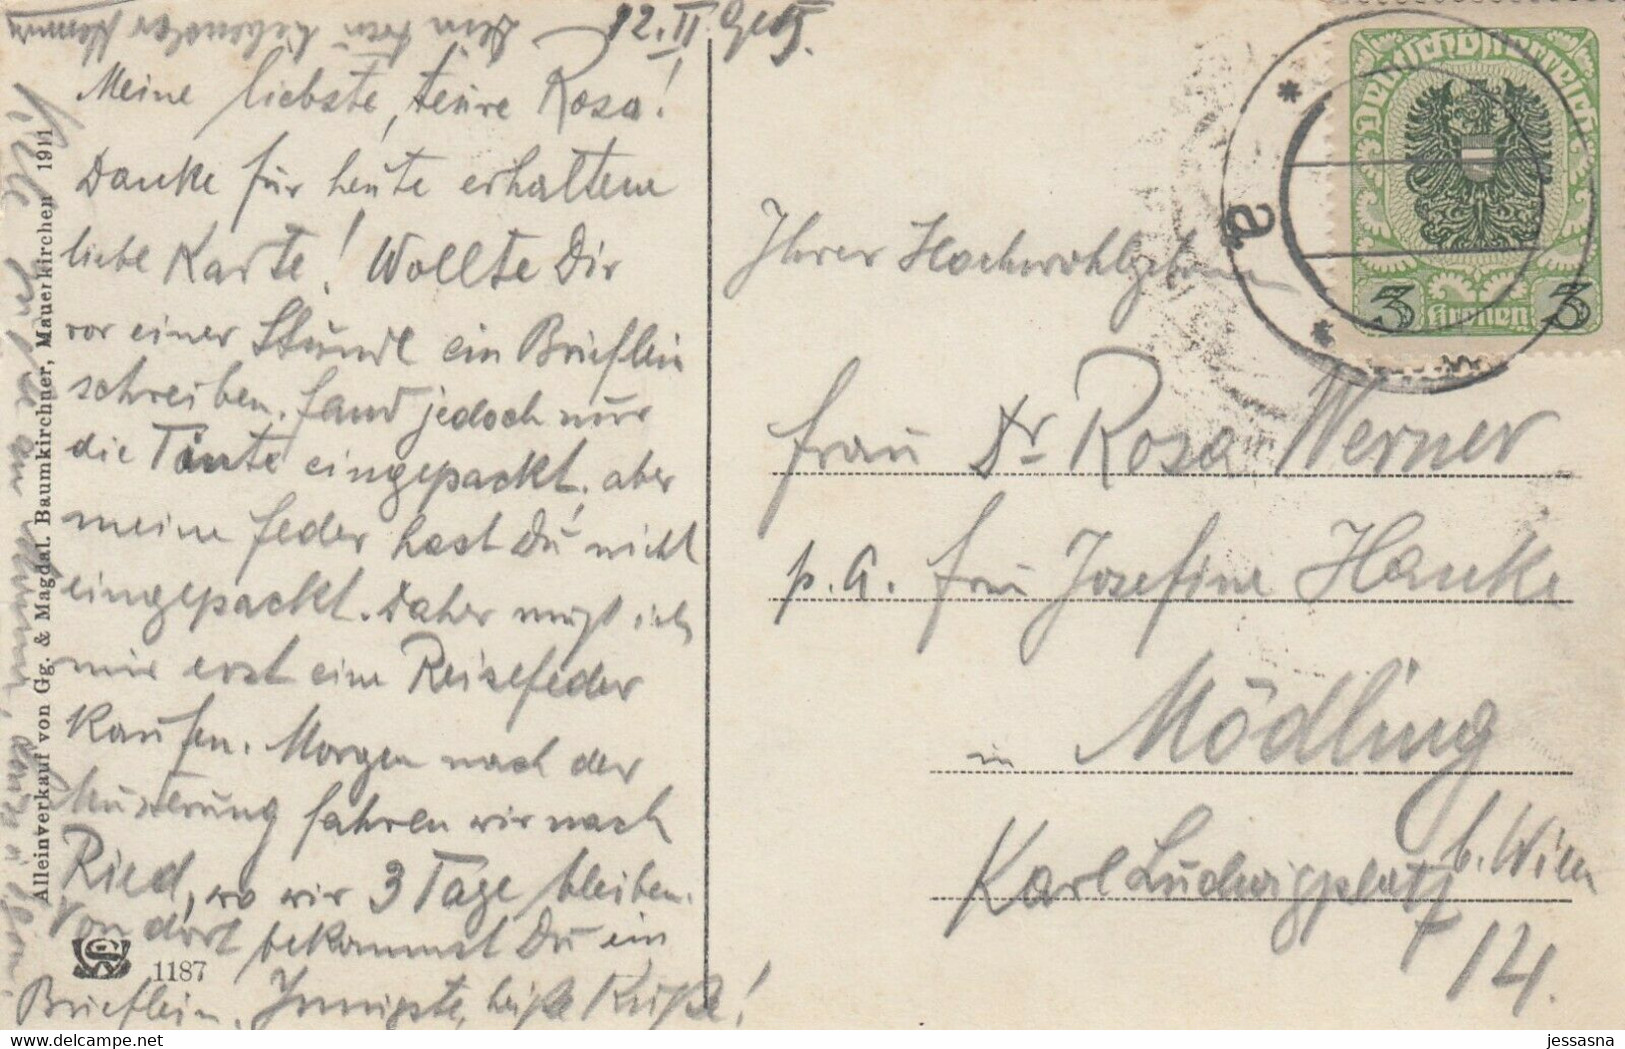 12. II
Meine liebste, teure Rosa!
Danke für heute erhaltene
liebe Karte! Wollte Dir
vor einer Stunde ein Brieflein
schreiben. fand jedoch nur
die Tante eingepackt, aber
meine Feder hast Du nicht
eingepackt. Daher muß ich
mir erst eine Reisefeder
kaufen. Morgen nach der
Musterung fahren wir nach
Ried, wo wir 3 Tage bleiben.
Von dort bekommst Du ein
Brieflein. Innigste, heiße Küße!
Alleinverkauf von Gg. & Magdal. Baumkirchner, Mauerkirchen 1911
1187
Deutschösterreich
3 Kronen 3
a
Ihrer Hochwohlgeboren
Frau Dr Rosa Werner
p. A. Frau Josefine Hanke
in Mödling
b. Wien
Karl Ludwigplatz
14.
delcampe.net
jessasna